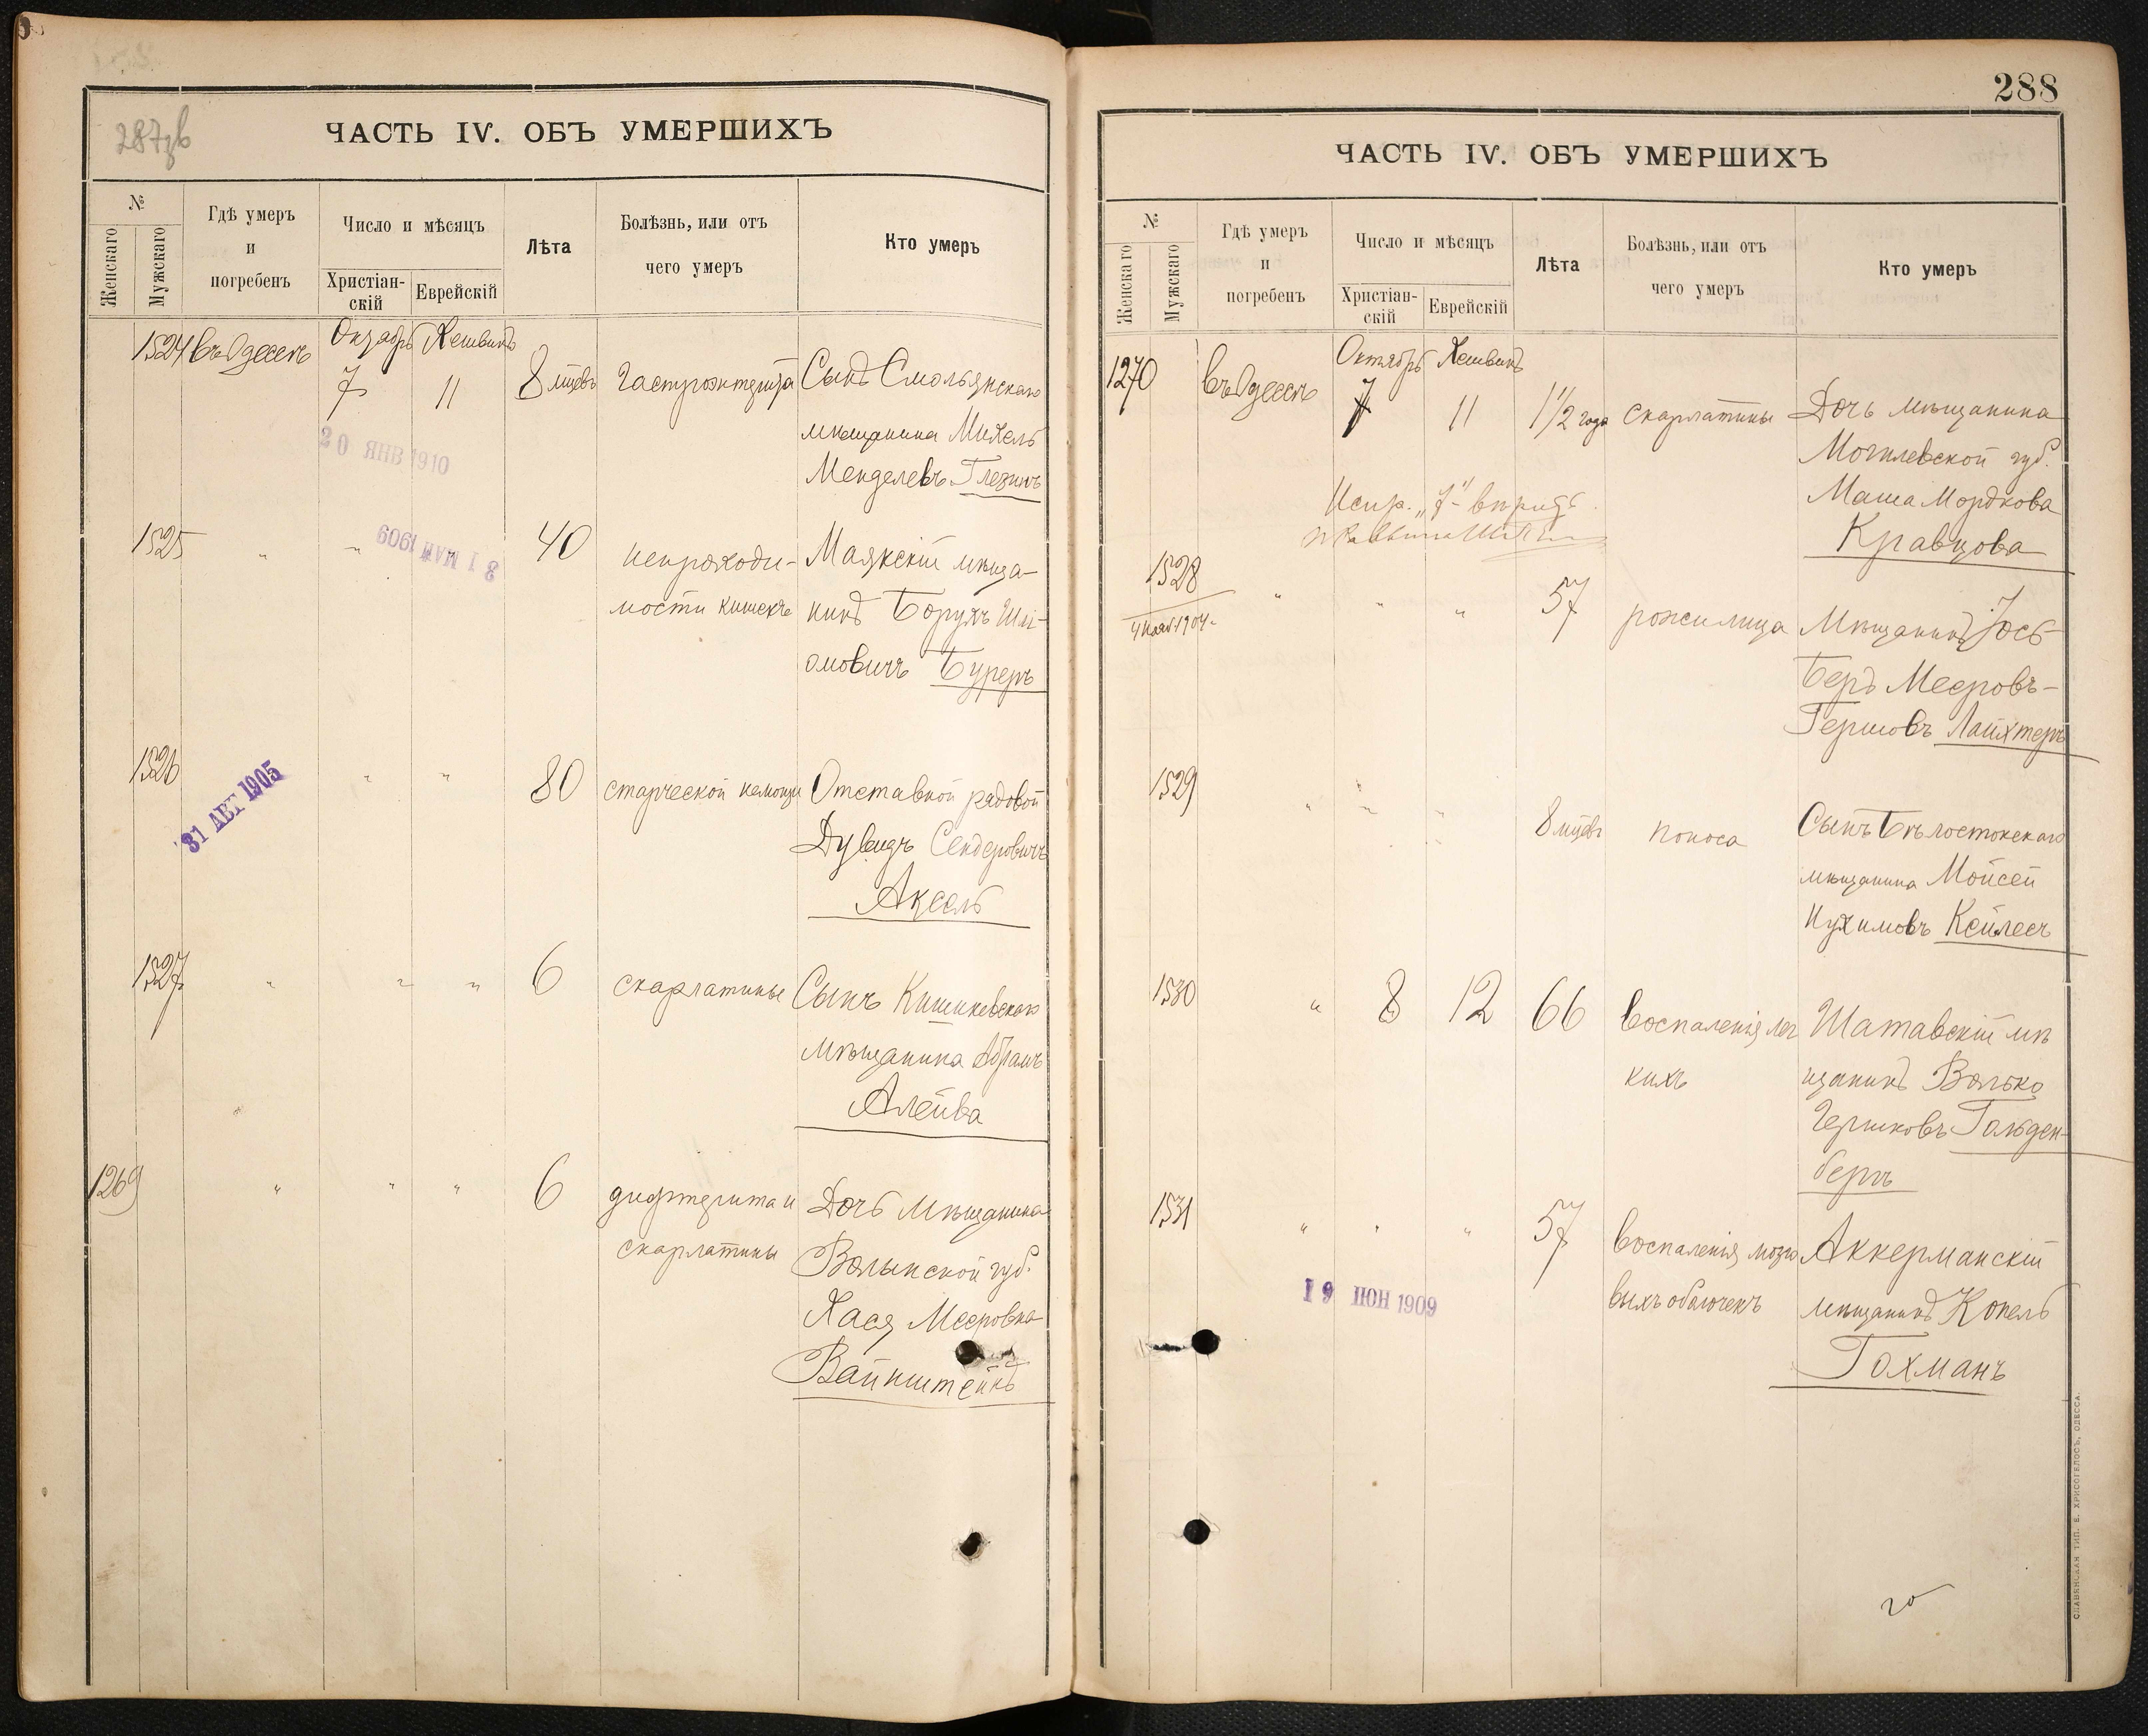 287об
ЧАСТЬ IV. ОБЪ УМЕРШИХЪ
№
Женскаго
Мужскаго
Гдѣ умеръ
и
погребенъ
Число и мѣсяцъ
Христіан-
скій
Еврейскій
Лѣта
Болѣзнь, или отъ
чего умеръ
Кто умеръ
1524 въ Одессѣ Октябрь Хешванъ
7 11 8 мцевъ гастроэнтерита Сынъ Смольянскаго
мѣщанина Михель
Менделевъ Глезинъ
20 ЯНВ 1910
1525 " " 40 непроходи- Маякскій мѣща-
31 МАЙ 1909
мости кишекъ нинъ Борухъ Шлі-
омовичъ Буреръ
1526 " " 80 старческой немощи Отставной рядовой
31 АВГ 1905
Дувидъ Сендеровичъ
Аксель
1527 " " " 6 скарлатины Сынъ Кишиневскаго
мѣщанина Абрамъ
Алейва
1269 " " " 6 дифтерита и Дочь мѣщанина
скарлатины Волынской губ.
Хася Мееровна
Вайнштейнъ
288
ЧАСТЬ IV. ОБЪ УМЕРШИХЪ
№
Женскаго
Мужскаго
Гдѣ умеръ
и
погребенъ
Число и мѣсяцъ
Христіан-
скій
Еврейскій
Лѣта
Болѣзнь, или отъ
чего умеръ
Кто умеръ
1270 въ Одессѣ Октябрь Хешванъ
7 11 1½ года скарлатины Дочь мѣщанина
Могилевской губ.
Маша Мордкова
Кравцова
Испр. „7" вѣрить.
1528 " " " 57 Мѣщанинъ Іось
4 Нояб. 1904.
Беръ Мееровъ-
Гершовъ Лайхтеръ
1529 " " " 8 мцевъ поноса Сынъ Бѣлостокскаго
мѣщанина Мойсей
Нухимовъ Кейлесъ
1530 " 8 12 66 воспаленія лег Шатавскій мѣ
кихъ щанинъ Волько
Гершковъ Гольден-
бергъ
1531 " " " 57 воспаленія мозго Аккерманскій
выхъ оболочекъ мѣщанинъ Копель
19 ІЮН 1909
Гохманъ
СЛАВЯНСКАЯ ТИП. Е. ХРИСОГЕЛОСЪ, ОДЕССА.